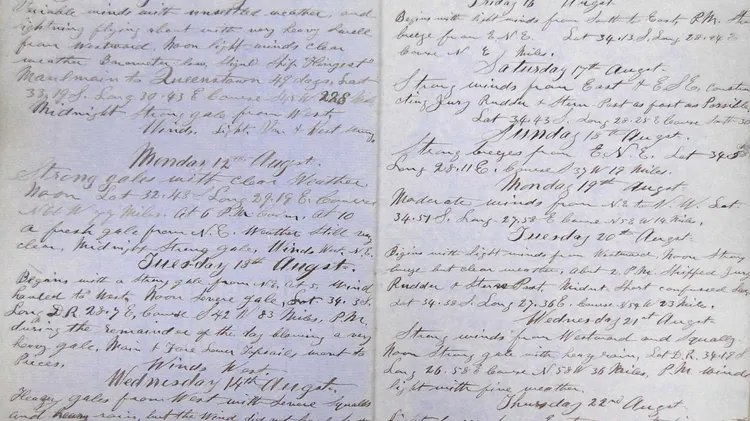 Variable winds with unsettled weather, and
lightning flying about with very heavy Swell
from Westward, Noon light winds clear
weather Barometer low, Signld Ship
Maulmain to Queenstown 49 days, Lat
33.19 S. Long 30.43 E Course W 228
Midnight Strong gale from West
Winds. Light. Var. &
Monday 12th Augst.
Strong gales with clear Weather
Noon Lat 32.43 Long 29.19 E. Course
N61 W 77 Miles. At 6 P.M. Calm, at 10
a fresh gale from N.E. Weather Still very
clear, Midnight Strong Gale, Winds West, N.E.
Tuesday 13th Augst.
Begins with a Strong gale from NE, At 5 Wind
hauled to West, Noon Severe gale, Lat 34.
Long D.R 28.7 E, Course S 42 W 83 Miles, P.M.
during the remainder of the day blowing a very
heavy gale, Main & Fore Lower Topsails went to
Pieces. Winds West.
Wednesday 14th Augst.
Heavy gales from West with Severe Squalls
and heavy rain, but the Wind did not
Friday 16 Augst
Begins with light winds from South to East, P.M.
breeze from E.N.E. Lat 34.13 S. Long 28.
Course N. E. Miles.
Saturday 17th Augst.
Strong winds from East & E.S.E, constru
cting Jury Rudder & Stern Post as fast as Possible,
Lat 34.43 S. Long 28.25 E Course South 30
Sunday 18th Augst.
Strong breezes from E.N.E. Lat 34.
Long 28.11 E. Course S 37 W 19 Miles.
Monday 19th Augst
Moderate winds from NE to N.W. Lat
34.51 S. Long 27.58 E Course N 52 W 14 Miles.
Tuesday 20th Augst.
Begins with light winds from Westward, Noon Strong
breeze but clear weather, abut 2 P.M. Shipped Jury
Rudder & Stern Post, Midnt Short confused Sea,
Lat 34.58 S. Long 27.36 E. Course S 54 W 23 Miles.
Wednesday 21st Augst
Strong winds from Westward and Squally
Noon Strong gale with heavy rain, Lat D.R. 34.
Long 26.58 E Course N 58 W 36 Miles, P.M. Winds
light with fine weather.
Thursday 22nd Augst.